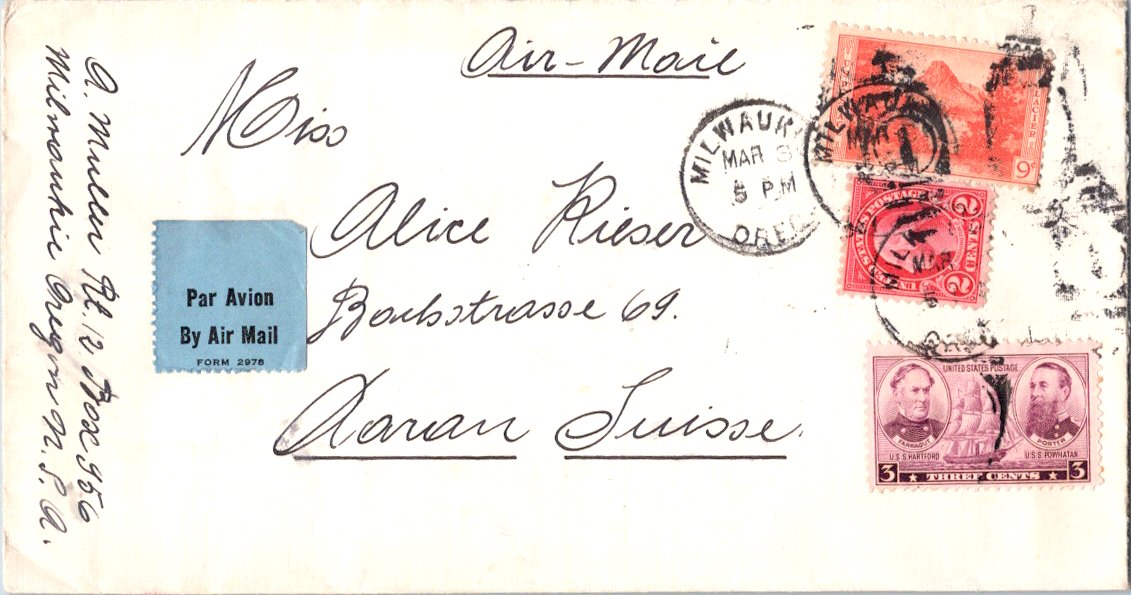 Air-Mail
Miss
Alice Rieser
Bachstrasse 69.
Aarau Suisse.
Par Avion
By Air Mail
FORM 2978
A. Muller Rt. 12 Box 956
Milwaukie Oregon U. S. A.
MILWAUK
MAR
5 PM
OREG
MILWAU
GLACIER
9¢
STATES POSTAGE
2 2
MIL
MAR
UNITED STATES POSTAGE
FARRAGUT
PORTER
U.S.S HARTFORD
U.S.S POWHATAN
3 ★ THREE CENTS ★ 3